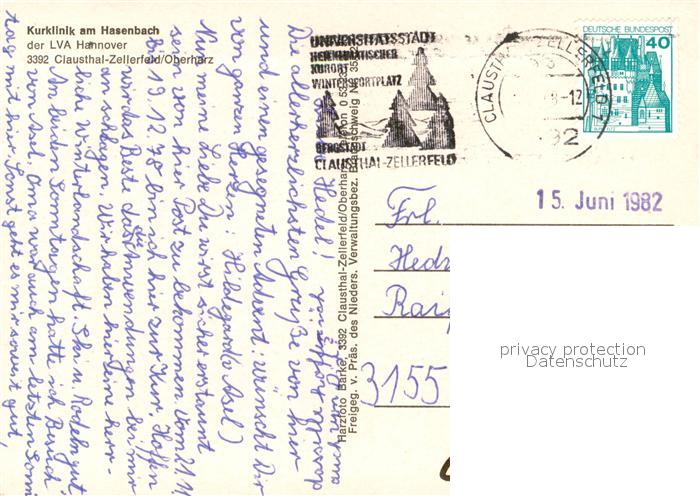 Kurklinik am Hasenbach
der LVA Hannover
3392 Clausthal-Zellerfeld/Oberharz
UNIVERSITÄTSSTADT
HEILKLIMATISCHER
KURORT
WINTERSPORTPLATZ
BERGSTADT
CLAUSTHAL-ZELLERFELD
CLAUSTHAL-ZELLERFELD 1
-12
82
DEUTSCHE BUNDESPOST
40
15. Juni 1982
Frl.
Hedw
Rai
3155
privacy protection
Datenschutz
Harzfoto Barke, 3392 Clausthal-Zellerfeld/Oberharz
Freigeg. v. Präs. des Nieders. Verwaltungsbez. Braunschweig Nr.
Hedel!
Die allerherzlichsten Grüße von hier
und einen gesegneten Advent, wünscht Dir
von ganzem Herzen: Hildegard (a. Asel)
Nun meine Liebe Du wirst sicher erstaunt
sein, von hier Post zu bekommen. Vom 21.11.
bis 19.12.78 bin ich hier zur Kur. Hoffen
wir das Beste daß die Anwendungen bei mir
anschlagen. Wir haben hier eine herr-
liche Winterlandschaft. Ski u. Rodeln gut
An beiden Sonntagen hatte ich Besuch
von Asel. Oma war auch am letzten Sonn
tag mit hier. Sonst geht es mir soweit gut,